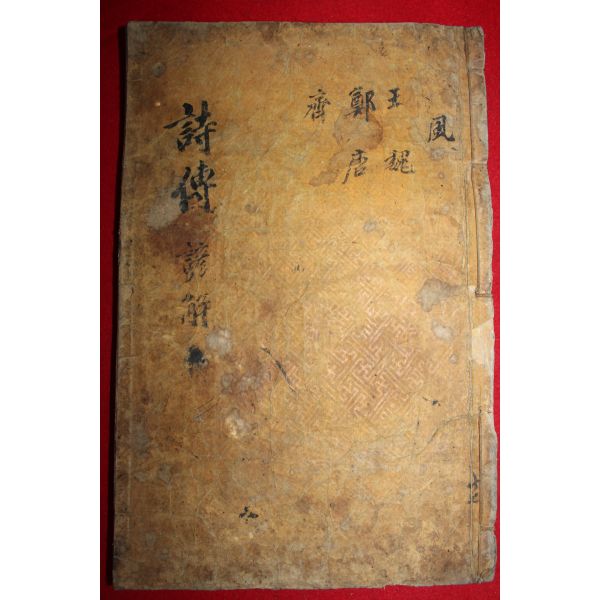 風
王 魏
鄭 唐
齊
詩傳 諺解